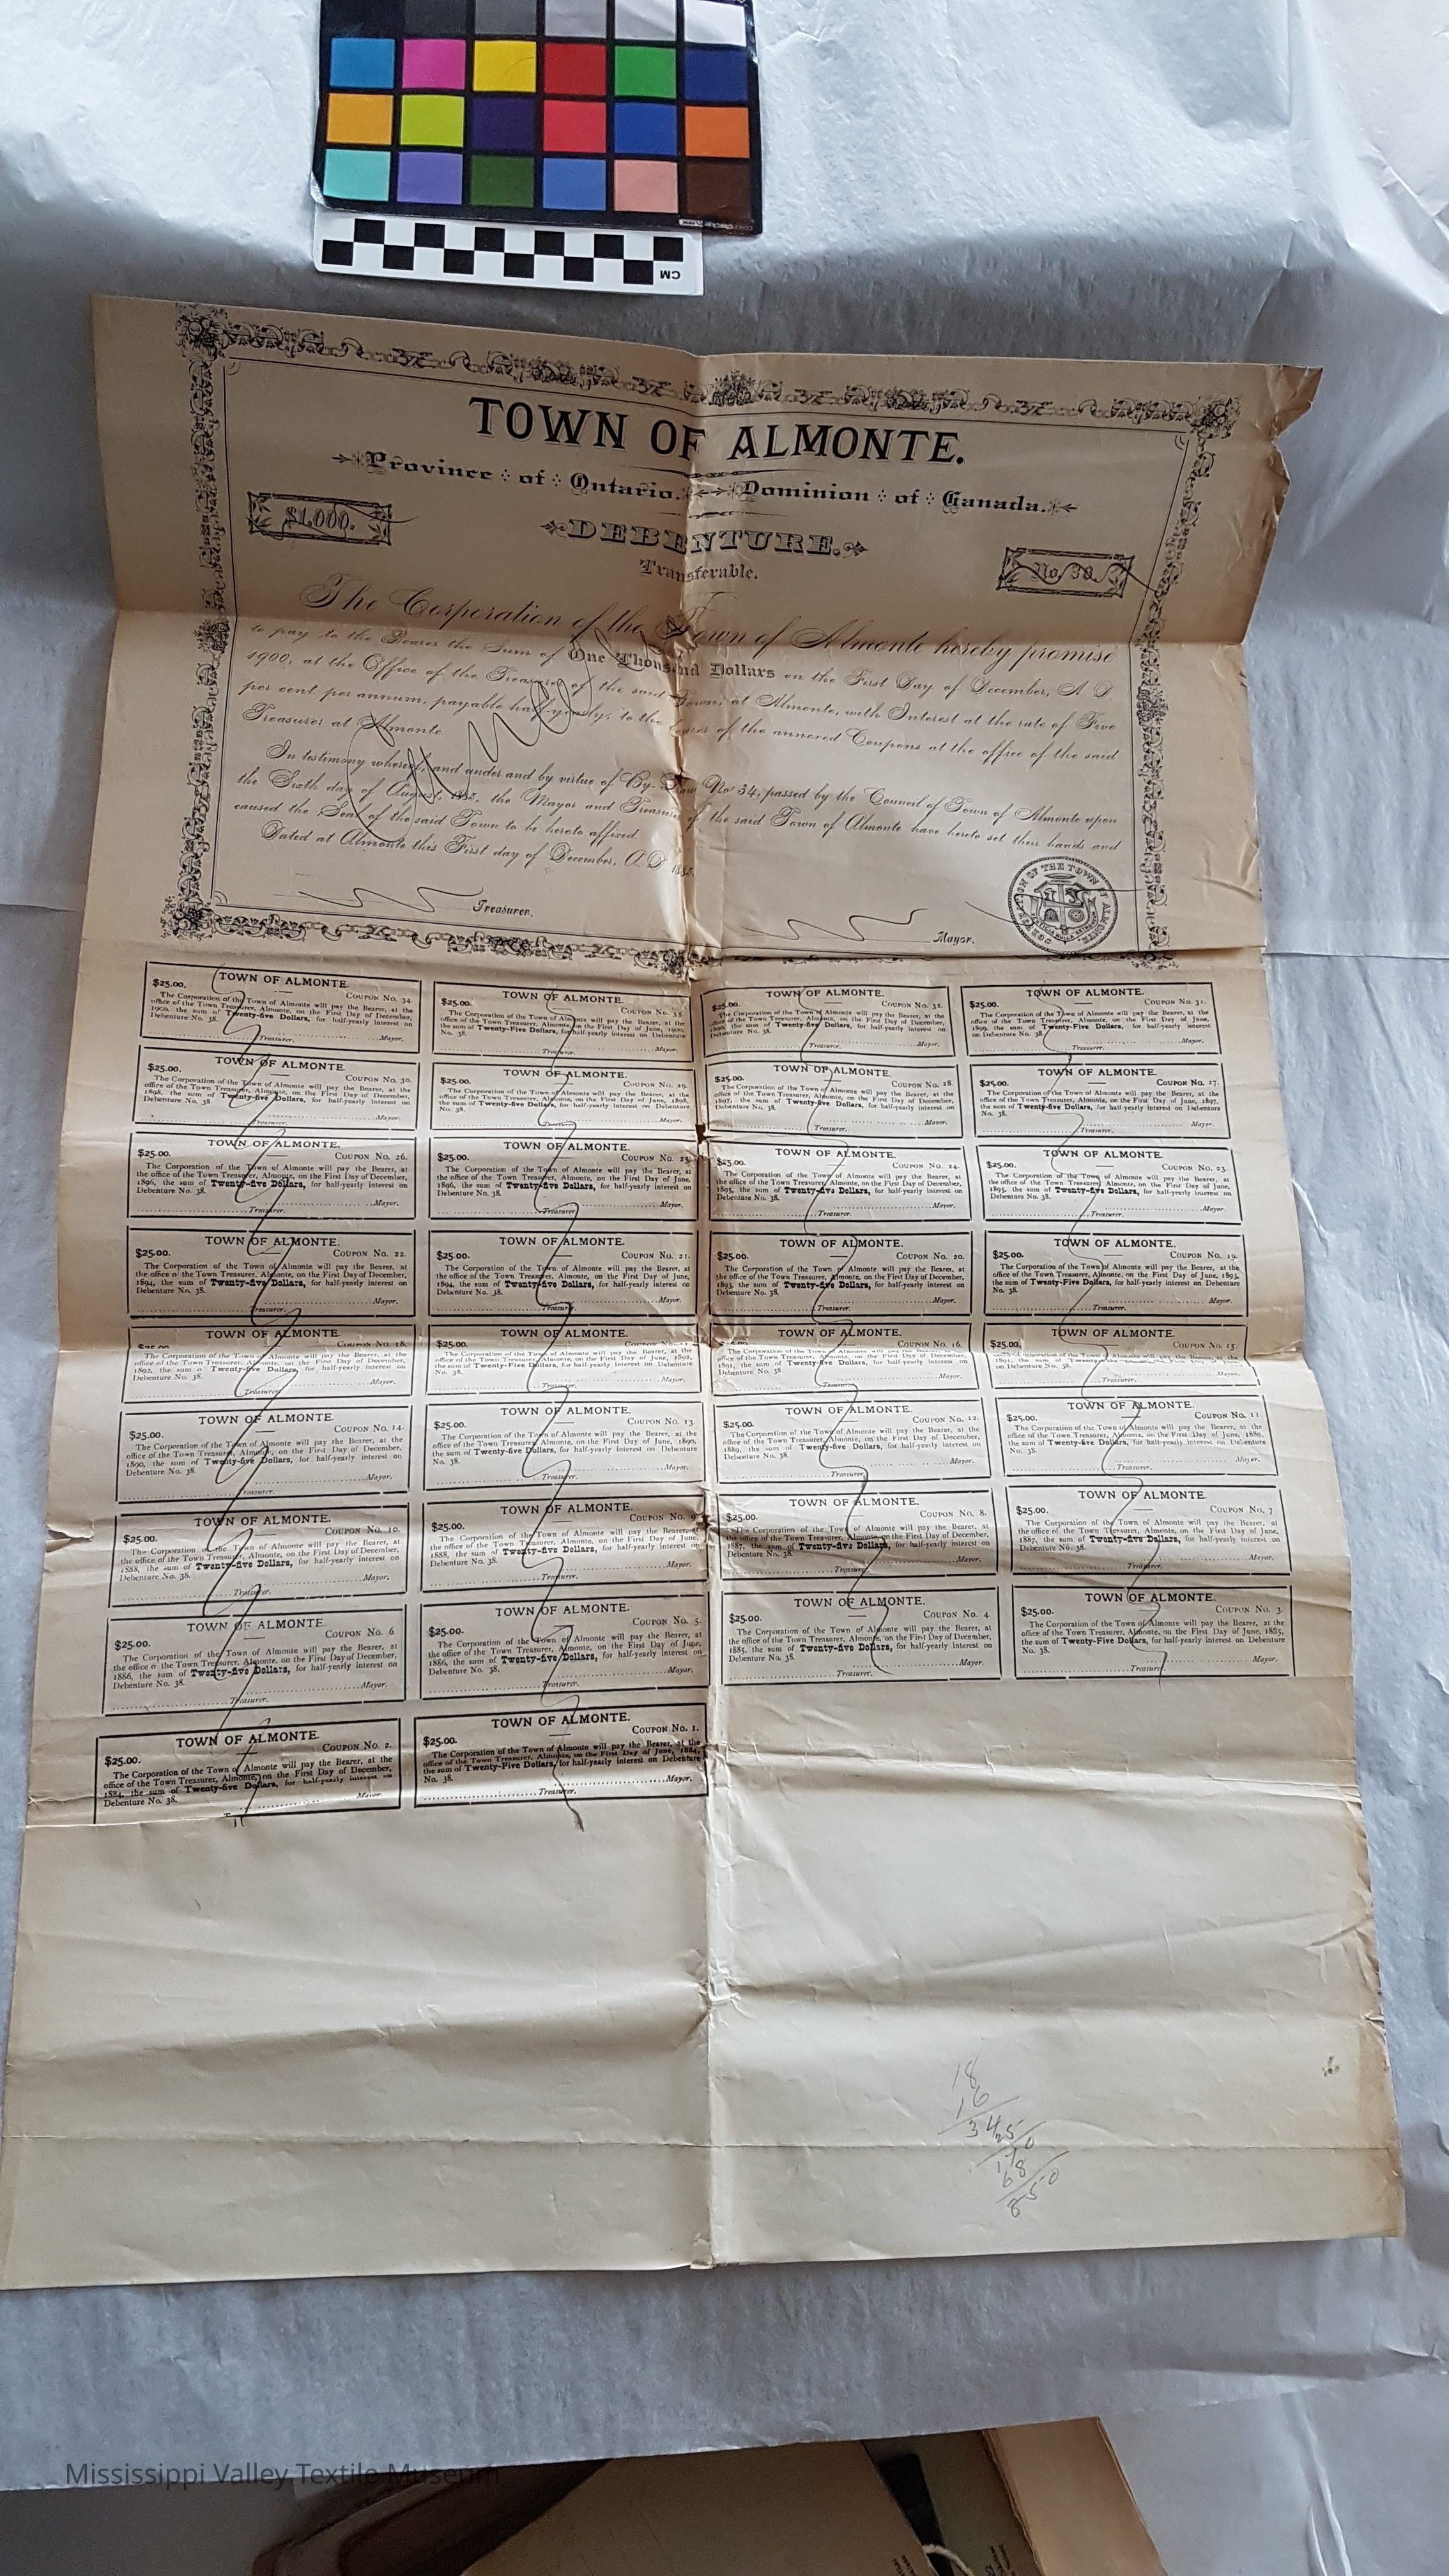 CM
TOWN OF ALMONTE.
Province of Ontario. Dominion of Canada.
$1,000.
DEBENTURE.
No. 38.
Transferable.
The Corporation of the Town of Almonte hereby promise
to pay to the Bearer the Sum of One Thousand Dollars on the First Day of December, A D
1900, at the Office of the Treasurer of the said Town, at Almonte, with Interest at the rate of Five
per cent per annum, payable half-yearly, to the bearer of the annexed Coupons at the office of the said
Treasurer at Almonte
In testimony whereof, and under and by virtue of By-Law No 34, passed by the Council of Town of Almonte upon
the Sixth day of August, the Mayor and Treasurer of the said Town of Almonte have hereto set their hands and
caused the Seal of the said Town to be hereto affixed
Dated at Almonte this First day of December, A.D
Treasurer.
Mayor.
TOWN OF ALMONTE.
$25.00. COUPON No. 34.
The Corporation of the Town of Almonte will pay the Bearer, at the
office of the Town Treasurer, Almonte, on the First Day of December,
1900, the sum of Twenty-five Dollars, for half-yearly interest on
Debenture No. 38.
Mayor.
Treasurer.
TOWN OF ALMONTE.
$25.00. COUPON No. 33
The Corporation of the Town of Almonte will pay the Bearer, at the
office of the Town Treasurer, Almonte, on the First Day of June, 1900,
the sum of Twenty-Five Dollars, for half-yearly interest on Debenture
No. 38.
Mayor.
Treasurer.
TOWN OF ALMONTE.
$25.00. COUPON No. 32.
The Corporation of the Town of Almonte will pay the Bearer, at the
office of the Town Treasurer, Almonte, on the First Day of December,
1899, the sum of Twenty-five Dollars, for half-yearly interest on
Debenture No. 38.
Mayor.
Treasurer.
TOWN OF ALMONTE.
$25.00. COUPON No. 31.
The Corporation of the Town of Almonte will pay the Bearer, at the
office of the Town Treasurer, Almonte, on the First Day of June,
1899, the sum of Twenty-Five Dollars, for half-yearly interest
on Debenture No. 38
Mayor.
Treasurer.
TOWN OF ALMONTE.
$25.00. COUPON No. 30.
The Corporation of the Town of Almonte will pay the Bearer, at the
office of the Town Treasurer, Almonte, on the First Day of December,
1898, the sum of Twenty-five Dollars, for half-yearly interest on
Debenture No. 38
Mayor.
Treasurer.
TOWN OF ALMONTE.
$25.00. COUPON No. 29.
The Corporation of the Town of Almonte will pay the Bearer, at the
office of the Town Treasurer, Almonte, on the First Day of June, 1898,
the sum of Twenty-five Dollars, for half-yearly interest on Debenture
No. 38.
Mayor.
Treasurer.
TOWN OF ALMONTE.
$25.00. COUPON No. 28.
The Corporation of the Town of Almonte will pay the Bearer, at the
office of the Town Treasurer, Almonte, on the First Day of December,
1897, the sum of Twenty-five Dollars, for half-yearly interest on
Debenture No. 38.
Mayor.
Treasurer.
TOWN OF ALMONTE.
$25.00. COUPON No. 27.
The Corporation of the Town of Almonte will pay the Bearer, at the
office of the Town Treasurer, Almonte, on the First Day of June, 1897,
the sum of Twenty-five Dollars, for half-yearly interest on Debenture
No. 38.
Mayor.
Treasurer.
TOWN OF ALMONTE.
$25.00. COUPON No. 26.
The Corporation of the Town of Almonte will pay the Bearer, at
the office of the Town Treasurer, Almonte, on the First Day of December,
1896, the sum of Twenty-five Dollars, for half-yearly interest on
Debenture No. 38.
Mayor.
Treasurer.
TOWN OF ALMONTE.
$25.00. COUPON No. 25
The Corporation of the Town of Almonte will pay the Bearer, at
the office of the Town Treasurer, Almonte, on the First Day of June,
1896, the sum of Twenty-five Dollars, for half-yearly interest on
Debenture No. 38.
Mayor.
Treasurer.
TOWN OF ALMONTE.
$25.00. COUPON No. 24.
The Corporation of the Town of Almonte will pay the Bearer, at
the office of the Town Treasurer, Almonte, on the First Day of December,
1895, the sum of Twenty-five Dollars, for half-yearly interest on
Debenture No. 38.
Mayor.
Treasurer.
TOWN OF ALMONTE.
$25.00. COUPON No. 23.
The Corporation of the Town of Almonte will pay the Bearer, at
the office of the Town Treasurer, Almonte, on the First Day of June,
1895, the sum of Twenty-five Dollars, for half-yearly interest on
Debenture No. 38.
Mayor.
Treasurer.
TOWN OF ALMONTE.
$25.00. COUPON No. 22.
The Corporation of the Town of Almonte will pay the Bearer, at
the office of the Town Treasurer, Almonte, on the First Day of December,
1894, the sum of Twenty-five Dollars, for half-yearly interest on
Debenture No. 38.
Mayor.
Treasurer.
TOWN OF ALMONTE.
$25.00. COUPON No. 21.
The Corporation of the Town of Almonte will pay the Bearer, at
the office of the Town Treasurer, Almonte, on the First Day of June,
1894, the sum of Twenty-five Dollars, for half-yearly interest on
Debenture No. 38.
Mayor.
Treasurer.
TOWN OF ALMONTE.
$25.00. COUPON No. 20.
The Corporation of the Town of Almonte will pay the Bearer, at
the office of the Town Treasurer, Almonte, on the First Day of December,
1893, the sum of Twenty-five Dollars, for half-yearly interest on
Debenture No. 38.
Mayor.
Treasurer.
TOWN OF ALMONTE.
$25.00. COUPON No. 19.
The Corporation of the Town of Almonte will pay the Bearer, at the
office of the Town Treasurer, Almonte, on the First Day of June, 1893,
the sum of Twenty-Five Dollars, for half-yearly interest on Debenture
No. 38.
Mayor.
Treasurer.
TOWN OF ALMONTE.
$25.00. COUPON No. 18.
The Corporation of the Town of Almonte will pay the Bearer, at the
office of the Town Treasurer, Almonte, on the First Day of December,
1892, the sum of Twenty-five Dollars, for half-yearly interest on
Debenture No. 38.
Mayor.
Treasurer.
TOWN OF ALMONTE.
$25.00. COUPON No.
The Corporation of the Town of Almonte will pay the Bearer, at the
office of the Town Treasurer, Almonte, on the First Day of June, 1892,
the sum of Twenty-Five Dollars, for half-yearly interest on Debenture
No. 38.
Mayor.
Treasurer.
TOWN OF ALMONTE.
$25.00. COUPON No. 16.
The Corporation of the Town of Almonte will pay the Bearer, at the
office of the Town Treasurer, Almonte, on the First Day of December,
1891, the sum of Twenty-five Dollars, for half-yearly interest on
Debenture No. 38.
Mayor.
Treasurer.
TOWN OF ALMONTE.
$25.00. COUPON No. 15.
1891, the sum of
on Debenture No. 38.
Mayor.
Treasurer.
TOWN OF ALMONTE.
$25.00. COUPON No. 14.
The Corporation of the Town of Almonte will pay the Bearer, at the
office of the Town Treasurer, Almonte, on the First Day of December,
1890, the sum of Twenty-five Dollars, for half-yearly interest on
Debenture No. 38.
Mayor.
Treasurer.
TOWN OF ALMONTE.
$25.00. COUPON No. 13.
The Corporation of the Town of Almonte will pay the Bearer, at the
office of the Town Treasurer, Almonte, on the First Day of June, 1890,
the sum of Twenty-five Dollars, for half-yearly interest on Debenture
No. 38.
Mayor.
Treasurer.
TOWN OF ALMONTE.
$25.00. COUPON No. 12.
The Corporation of the Town of Almonte will pay the Bearer, at the
office of the Town Treasurer, Almonte, on the First Day of December,
1889, the sum of Twenty-five Dollars, for half-yearly interest on
Debenture No. 38.
Mayor.
Treasurer.
TOWN OF ALMONTE.
$25.00. COUPON No. 11
The Corporation of the Town of Almonte will pay the Bearer, at the
office of the Town Treasurer, Almonte, on the First Day of June, 1889,
the sum of Twenty-five Dollars, for half-yearly interest on Debenture
No. 38.
Mayor.
Treasurer.
TOWN OF ALMONTE.
$25.00. COUPON No. 10.
The Corporation of the Town of Almonte will pay the Bearer, at
the office of the Town Treasurer, Almonte, on the First Day of December,
1888, the sum of Twenty-five Dollars, for half-yearly interest on
Debenture No. 38.
Mayor.
Treasurer.
TOWN OF ALMONTE.
$25.00. COUPON No. 9
The Corporation of the Town of Almonte will pay the Bearer, at
the office of the Town Treasurer, Almonte, on the First Day of June,
1888, the sum of Twenty-five Dollars, for half-yearly interest on
Debenture No. 38.
Mayor.
Treasurer.
TOWN OF ALMONTE.
$25.00. COUPON No. 8.
The Corporation of the Town of Almonte will pay the Bearer, at
the office of the Town Treasurer, Almonte, on the First Day of December,
1887, the sum of Twenty-five Dollars, for half-yearly interest on
Debenture No. 38.
Mayor.
Treasurer.
TOWN OF ALMONTE.
$25.00. COUPON No. 7
The Corporation of the Town of Almonte will pay the Bearer, at
the office of the Town Treasurer, Almonte, on the First Day of June,
1887, the sum of Twenty-five Dollars, for half-yearly interest on
Debenture No. 38.
Mayor.
Treasurer.
TOWN OF ALMONTE.
$25.00. COUPON No. 6
The Corporation of the Town of Almonte will pay the Bearer, at
the office o the Town Treasurer, Almonte, on the First Day of December,
1886, the sum of Twenty-five Dollars, for half-yearly interest on
Debenture No. 38.
Mayor.
Treasurer.
TOWN OF ALMONTE.
$25.00. COUPON No. 5.
The Corporation of the Town of Almonte will pay the Bearer, at
the office of the Town Treasurer, Almonte, on the First Day of June,
1886, the sum of Twenty-five Dollars, for half-yearly interest on
Debenture No. 38.
Mayor.
Treasurer.
TOWN OF ALMONTE.
$25.00. COUPON No. 4.
The Corporation of the Town of Almonte will pay the Bearer, at
the office of the Town Treasurer, Almonte, on the First Day of December,
1885, the sum of Twenty-five Dollars, for half-yearly interest on
Debenture No. 38.
Mayor.
Treasurer.
TOWN OF ALMONTE.
$25.00. COUPON No. 3.
The Corporation of the Town of Almonte will pay the Bearer, at the
office of the Town Treasurer, Almonte, on the First Day of June, 1885,
the sum of Twenty-Five Dollars, for half-yearly interest on Debenture
No. 38.
Mayor.
Treasurer.
TOWN OF ALMONTE.
$25.00. COUPON No. 2.
The Corporation of the Town of Almonte will pay the Bearer, at the
office of the Town Treasurer, Almonte, on the First Day of December,
1884, the sum of Twenty-five Dollars, for half-yearly interest on
Debenture No. 38.
Mayor.
TOWN OF ALMONTE.
$25.00. COUPON No. 1.
The Corporation of the Town of Almonte will pay the Bearer, at the
office of the Town Treasurer, Almonte, on the First Day of June, 1884,
the sum of Twenty-Five Dollars, for half-yearly interest on Debenture
No. 38.
Mayor.
Treasurer.
18
16
34
Mississippi Valley Textile Museum